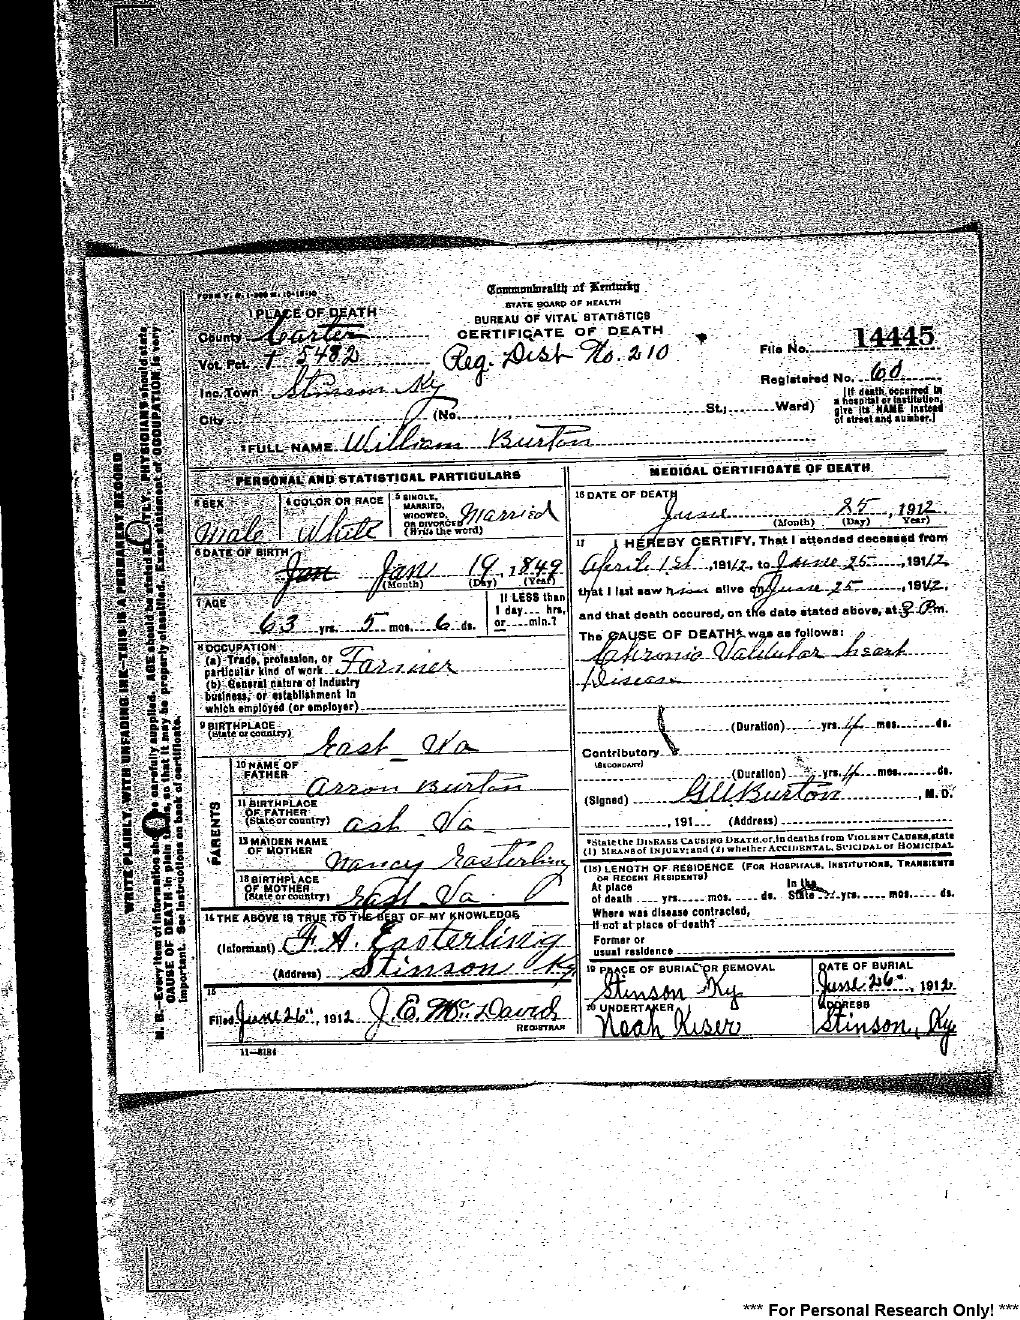 FORM V. S. 1-
Commonwealth of Kentucky
STATE BOARD OF HEALTH
BUREAU OF VITAL STATISTICS
CERTIFICATE OF DEATH
1 PLACE OF DEATH
County Carter
Vot. Pct. 5482
Reg. Dist No. 210
File No. 14445
Registered No. 60
Inc. Town Stinson Ky
City (No. , St.; Ward)
[If death occurred in
a hospital or institution,
give its NAME instead
of street and number.]
2 FULL NAME William Burton
PERSONAL AND STATISTICAL PARTICULARS
3 SEX
Male
4 COLOR OR RACE
White
5 SINGLE,
MARRIED,
WIDOWED,
OR DIVORCED
(Write the word)
Married
6 DATE OF BIRTH
Jan Jan 19, 1849
(Month) (Day) (Year)
7 AGE
63 yrs. 5 mos. 6 ds.
If LESS than
1 day... hrs.
or... min.?
8 OCCUPATION
(a) Trade, profession, or
particular kind of work Farmer
(b) General nature of Industry
business, or establishment in
which employed (or employer)
9 BIRTHPLACE
(State or country)
East Va
PARENTS
10 NAME OF
FATHER
Arron Burton
11 BIRTHPLACE
OF FATHER
(State or country)
Va
12 MAIDEN NAME
OF MOTHER
Nancy Easterling
13 BIRTHPLACE
OF MOTHER
(State or country)
East Va
14 THE ABOVE IS TRUE TO THE BEST OF MY KNOWLEDGE
(Informant) F. A. Easterling
(Address) Stinson Ky
15
Filed June 26", 1912 J. E. McDavid
REGISTRAR
11-8184
MEDICAL CERTIFICATE OF DEATH
16 DATE OF DEATH
June 25, 1912
(Month) (Day) Year)
17 I HEREBY CERTIFY, That I attended deceased from
April 1st, 1912, to June 25, 1912,
that I last saw him alive on June 25, 1912,
and that death occured, on the date stated above, at 8 Pm.
The CAUSE OF DEATH* was as follows:
Cahronic Valdular heart
Disease
(Duration) yrs. 4 mos. ds.
Contributory
(SECONDARY)
(Duration) yrs. 4 mos. ds.
(Signed) Burton, M. D.
, 191 (Address)
*State the DISEASE CAUSING DEATH, or, in deaths from VIOLENT CAUSES, state
(1) MEANS OF INJURY; and (2) whether ACCIDENTAL, SUICIDAL or HOMICIDAL
(18) LENGTH OF RESIDENCE (FOR HOSPITALS, INSTITUTIONS, TRANSIENTS
OR RECENT RESIDENTS)
At place In the
of death yrs. mos. ds. State yrs. mos. ds.
Where was disease contracted,
If not at place of death?
Former or
usual residence
19 PLACE OF BURIAL OR REMOVAL
Stinson Ky
DATE OF BURIAL
June 26", 1912
20 UNDERTAKER
Noah Kiser
ADDRESS
Stinson, Ky
WRITE PLAINLY WITH UNFADING INK—THIS IS A PERMANENT RECORD
N. B.—Every item of Information should be carefully supplied. AGE should be stated EXACTLY. PHYSICIANS should state
CAUSE OF DEATH in plain terms, so that it may be properly classified. Exact statement of OCCUPATION is very
important. See instructions on back of certificate.
*** For Personal Research Only! ***